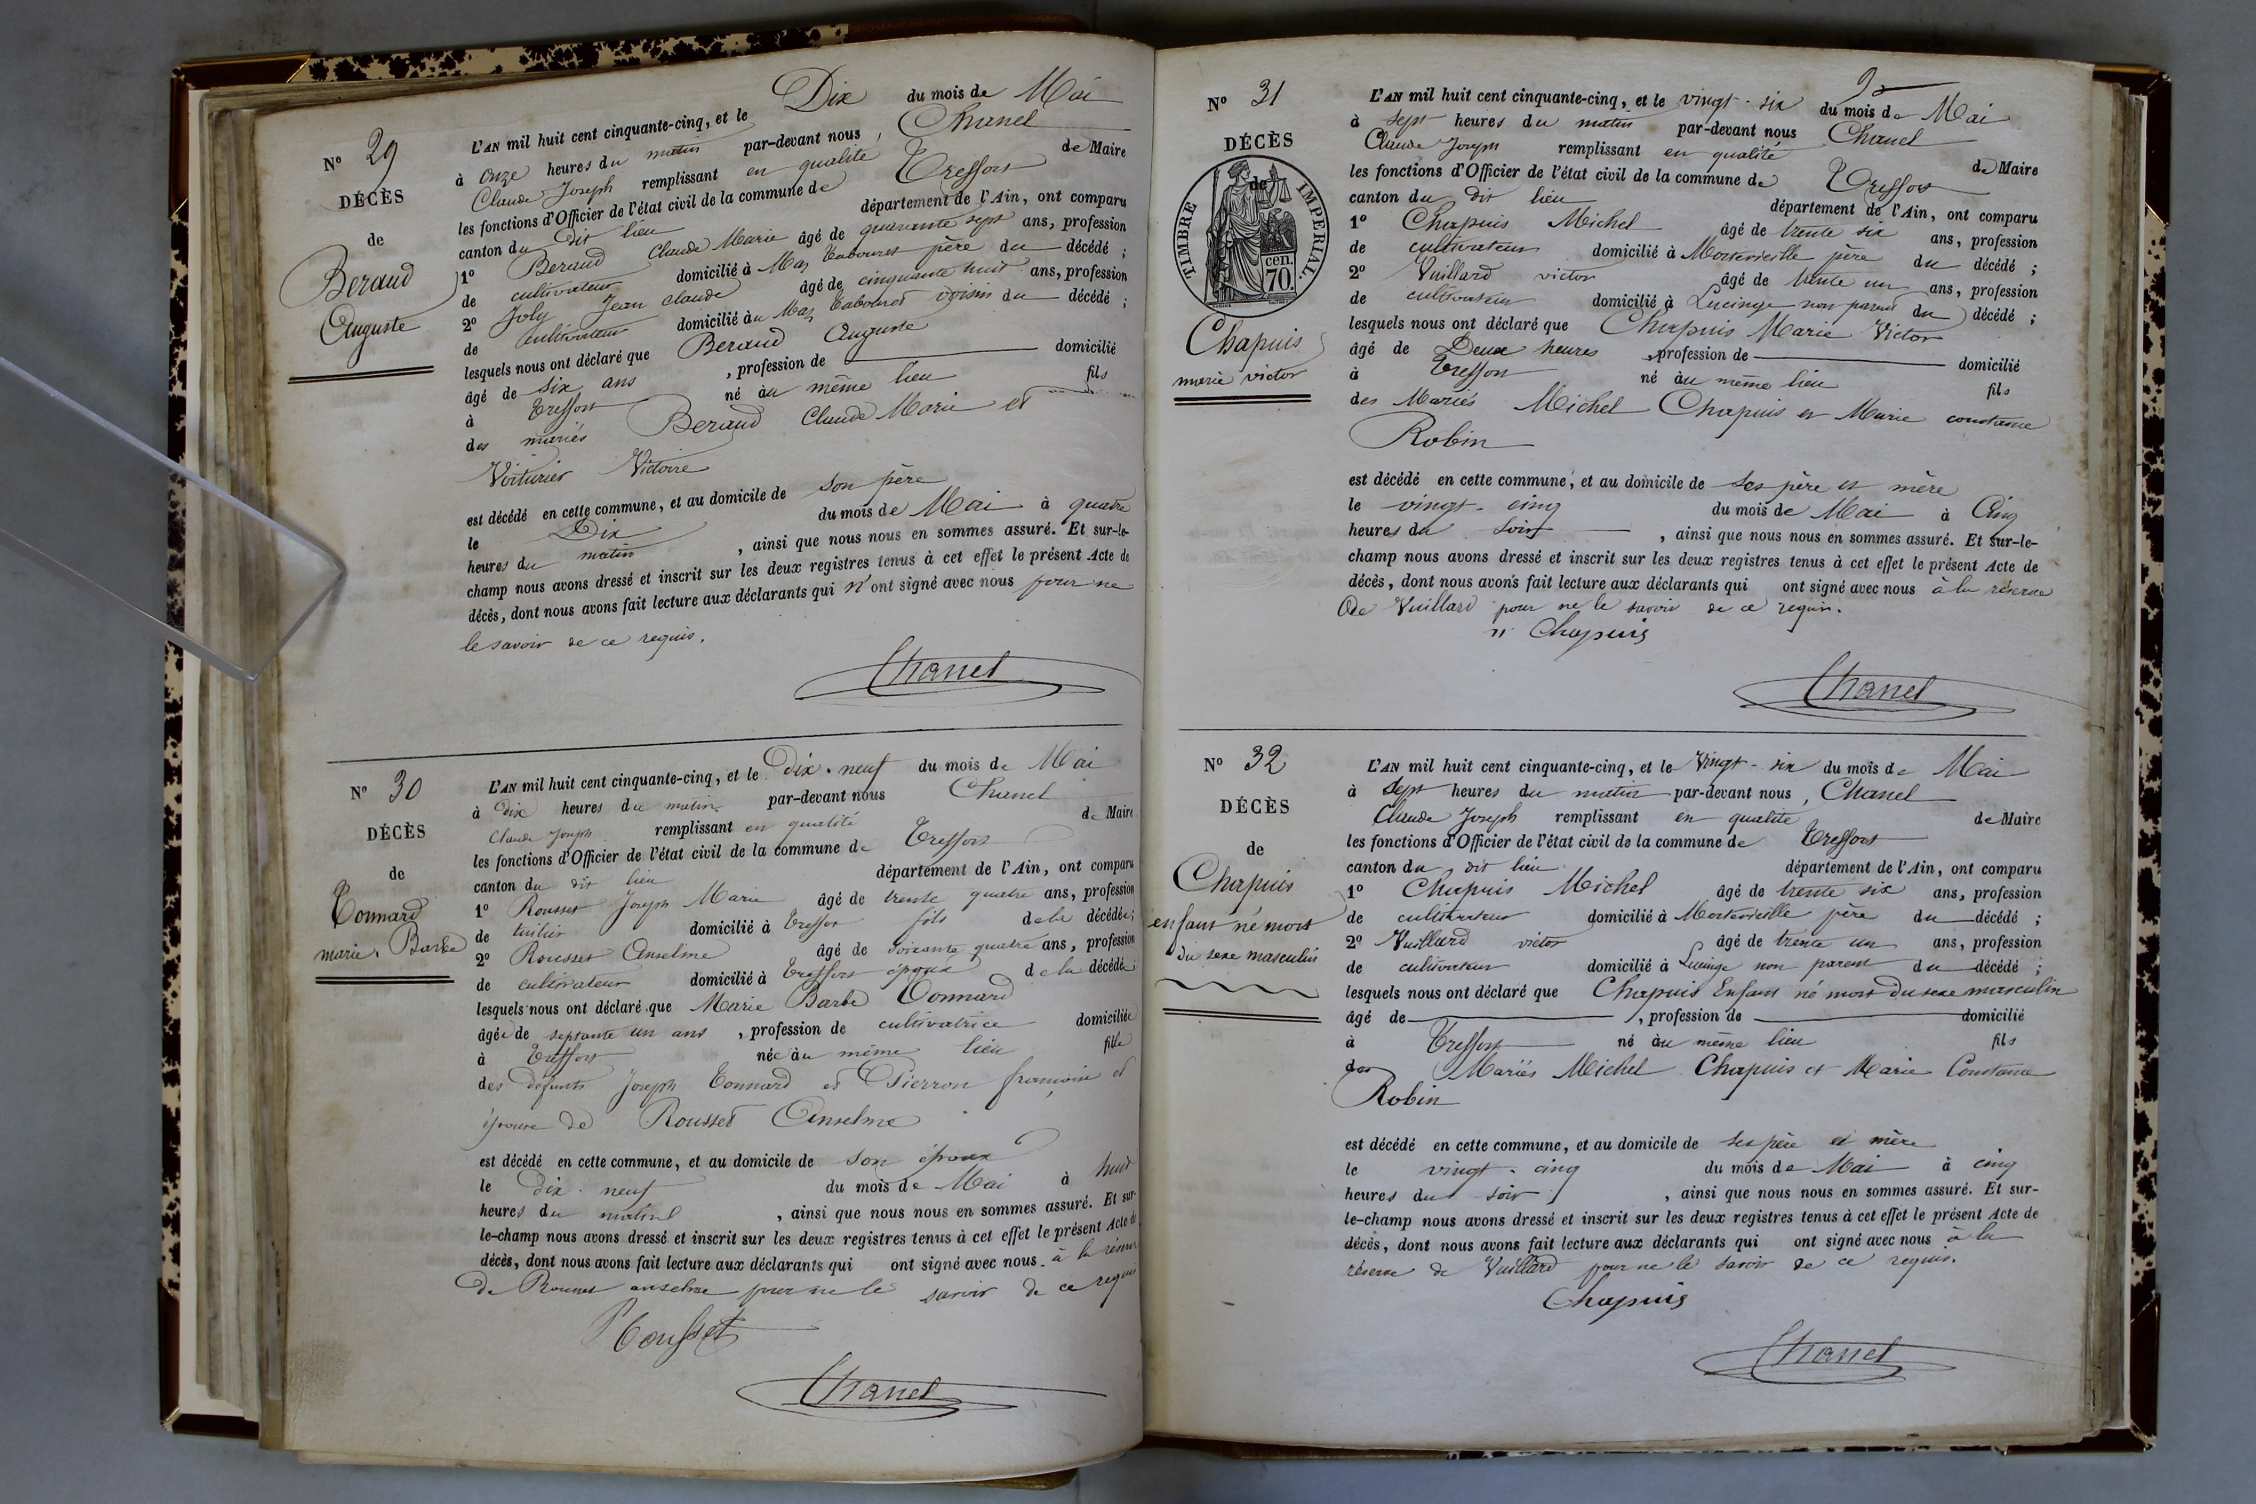 N° 29
DÉCÈS
de
Beraud
Auguste
L'AN mil huit cent cinquante-cinq, et le Dix du mois de Mai
à onze heures du matin par-devant nous, Chanel
Claude Joseph remplissant en qualité de Maire
les fonctions d'Officier de l'état civil de la commune de Treffort
canton du dit lieu département de l'Ain, ont comparu
1° Beraud Claude Marie âgé de quarante sept ans, profession
de cultivateur domicilié à Mas Tabouret père du décédé ;
2° Joly Jean claude âgé de cinquante huit ans, profession
de cultivateur domicilié au Mas Tabouret voisin du décédé ;
lesquels nous ont déclaré que Beraud Auguste
âgé de six ans , profession de domicilié
à Treffort né au même lieu fils
des mariés Beraud Claude Marie et
Voiturier Victoire
est décédé en cette commune, et au domicile de son père
le Dix du mois de Mai à quatre
heures du matin , ainsi que nous nous en sommes assuré. Et sur-le-
champ nous avons dressé et inscrit sur les deux registres tenus à cet effet le présent Acte de
décès, dont nous avons fait lecture aux déclarants qui n'ont signé avec nous pour ne
le savoir de ce requis.
Chanel
N° 30
DÉCÈS
de
Tonnard
marie. Barbe
L'AN mil huit cent cinquante-cinq, et le Dix. neuf du mois de Mai
à dix heures du matin par-devant nous Chanel
Claude Joseph remplissant en qualité de Maire
les fonctions d'Officier de l'état civil de la commune de Treffort
canton du dit lieu département de l'Ain, ont comparu
1° Rousset Joseph Marie âgé de trente quatre ans, profession
de tuilier domicilié à Treffort fils de la décédée ;
2° Rousset Anselme âgé de soixante quatre ans, profession
de cultivateur domicilié à Treffort époux de la décédée
lesquels nous ont déclaré que Marie Barbe Tonnard
âgée de septante un ans , profession de cultivatrice domiciliée
à Treffort née au même lieu fille
des défunts Joseph Tonnard et Pierron françoise et
épouse de Rousset Anselme
est décédé en cette commune, et au domicile de son époux
le dix. neuf du mois de Mai à huit
heures du matin , ainsi que nous nous en sommes assuré. Et sur-
le-champ nous avons dressé et inscrit sur les deux registres tenus à cet effet le présent Acte de
décès, dont nous avons fait lecture aux déclarants qui ont signé avec nous à la réserve
de Rousset anselme pour ne le savoir de ce requis
Rousset
Chanel
N° 31
DÉCÈS
de
TIMBRE IMPERIAL.
70. cen.
Chapuis
marie victor
L'AN mil huit cent cinquante-cinq, et le vingt-six du mois de Mai
à sept heures du matin par-devant nous Chanel
Claude Joseph remplissant en qualité de Maire
les fonctions d'Officier de l'état civil de la commune de Treffort
canton du dit lieu département de l'Ain, ont comparu
1° Chapuis Michel âgé de trente six ans, profession
de cultivateur domicilié à Montmerle père du décédé ;
2° Vuillard victor âgé de trente un ans, profession
de cultivateur domicilié à Lucinge non parent du décédé ;
lesquels nous ont déclaré que Chapuis Marie Victor
âgé de Deux heures , profession de domicilié
à Treffort né au même lieu fils
des Mariés Michel Chapuis et Marie constance
Robin
est décédé en cette commune, et au domicile de ses père et mère
le vingt-cinq du mois de Mai à Cinq
heures du soir , ainsi que nous nous en sommes assuré. Et sur-le-
champ nous avons dressé et inscrit sur les deux registres tenus à cet effet le présent Acte de
décès, dont nous avons fait lecture aux déclarants qui ont signé avec nous à la réserve
de Vuillard pour ne le savoir de ce requis.
Chapuis
Chanel
N° 32
DÉCÈS
de
Chapuis
enfant né mort
du sexe masculin
L'AN mil huit cent cinquante-cinq, et le Vingt-six du mois de Mai
à sept heures du matin par-devant nous, Chanel
Claude Joseph remplissant en qualité de Maire
les fonctions d'Officier de l'état civil de la commune de Treffort
canton du dit lieu département de l'Ain, ont comparu
1° Chapuis Michel âgé de trente six ans, profession
de cultivateur domicilié à père du décédé ;
2° Vuillard victor âgé de trente un ans, profession
de cultivateur domicilié à Lucinge non parent du décédé ;
lesquels nous ont déclaré que Chapuis Enfant né mort du sexe masculin
âgé de , profession de domicilié
à Treffort né au même lieu fils
des Mariés Michel Chapuis et Marie Constance
Robin
est décédé en cette commune, et au domicile de ses père et mère
le vingt-cinq du mois de Mai à cinq
heures du soir , ainsi que nous nous en sommes assuré. Et sur-
le-champ nous avons dressé et inscrit sur les deux registres tenus à cet effet le présent Acte de
décès, dont nous avons fait lecture aux déclarants qui ont signé avec nous à la
réserve de Vuillard pour ne le savoir de ce requis.
Chapuis
Chanel